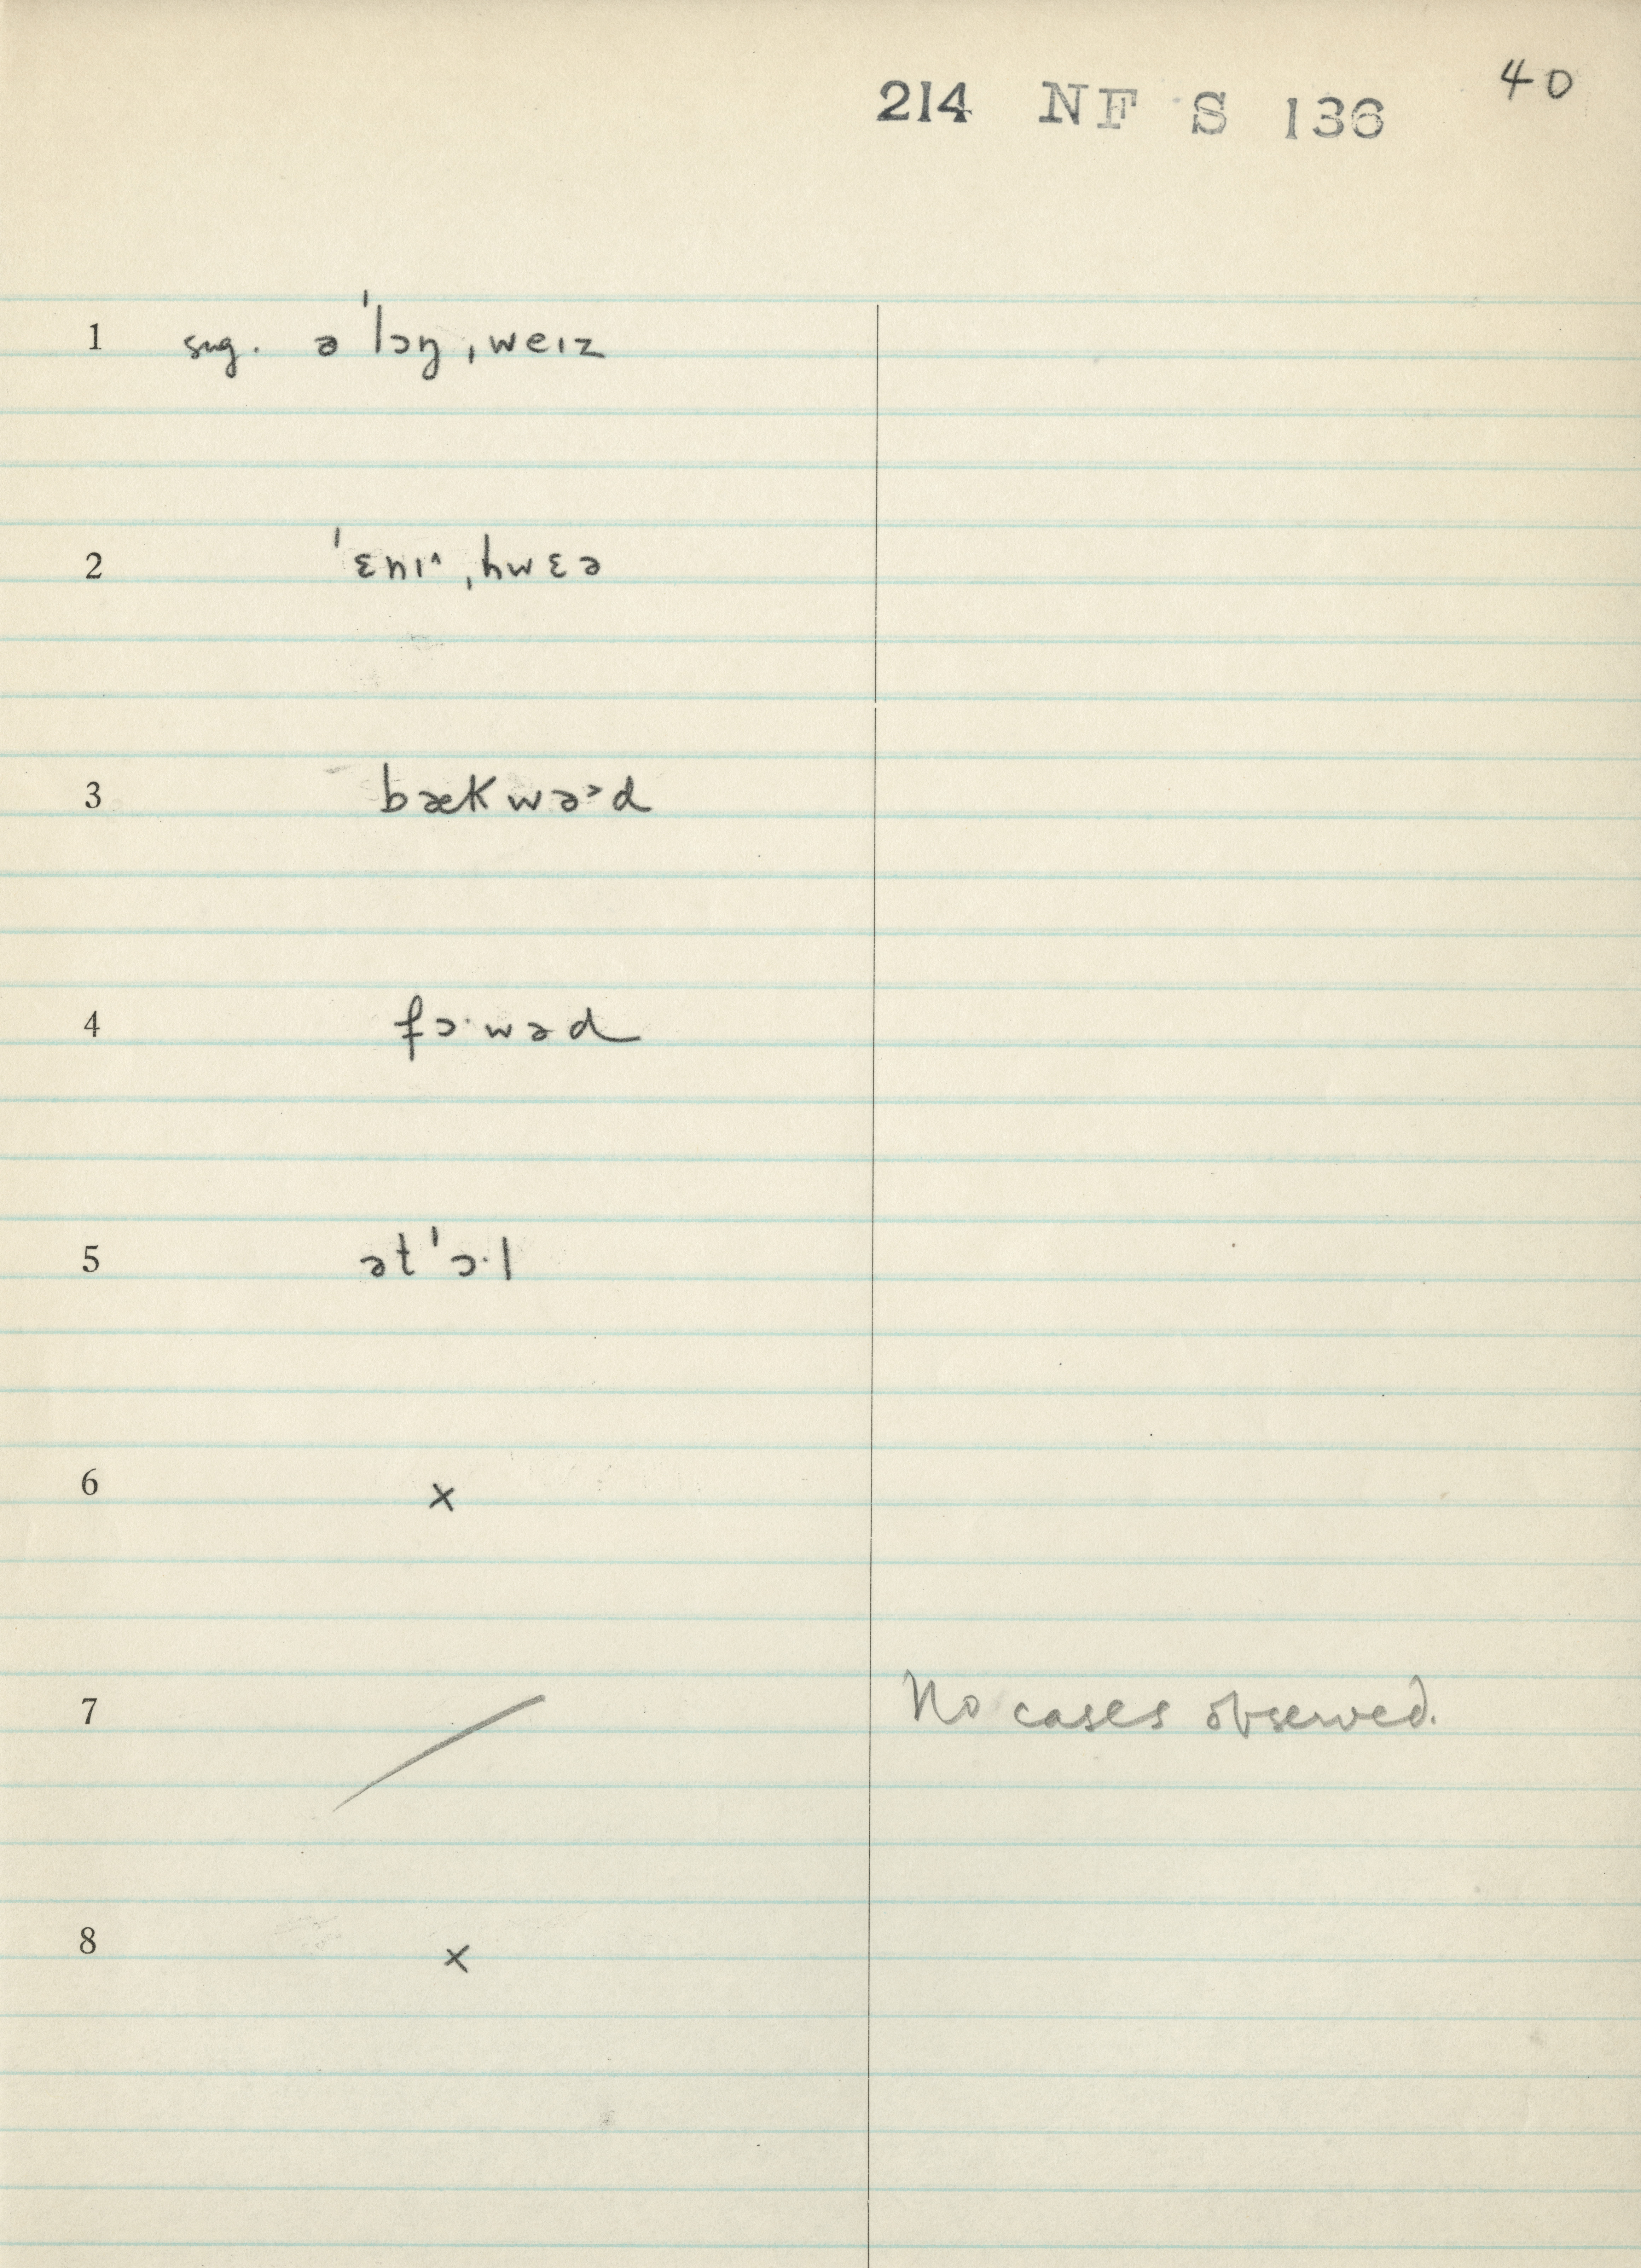 40
214 NF S 136
1 sug. əˈlɔŋˌweɪz
2 ˈɛnɪ^ˌhwɛə
3 bækwə>d
4 fɔ·wəd
5 ətˈɔ·l
6 x
7 / No cases observed.
8 x